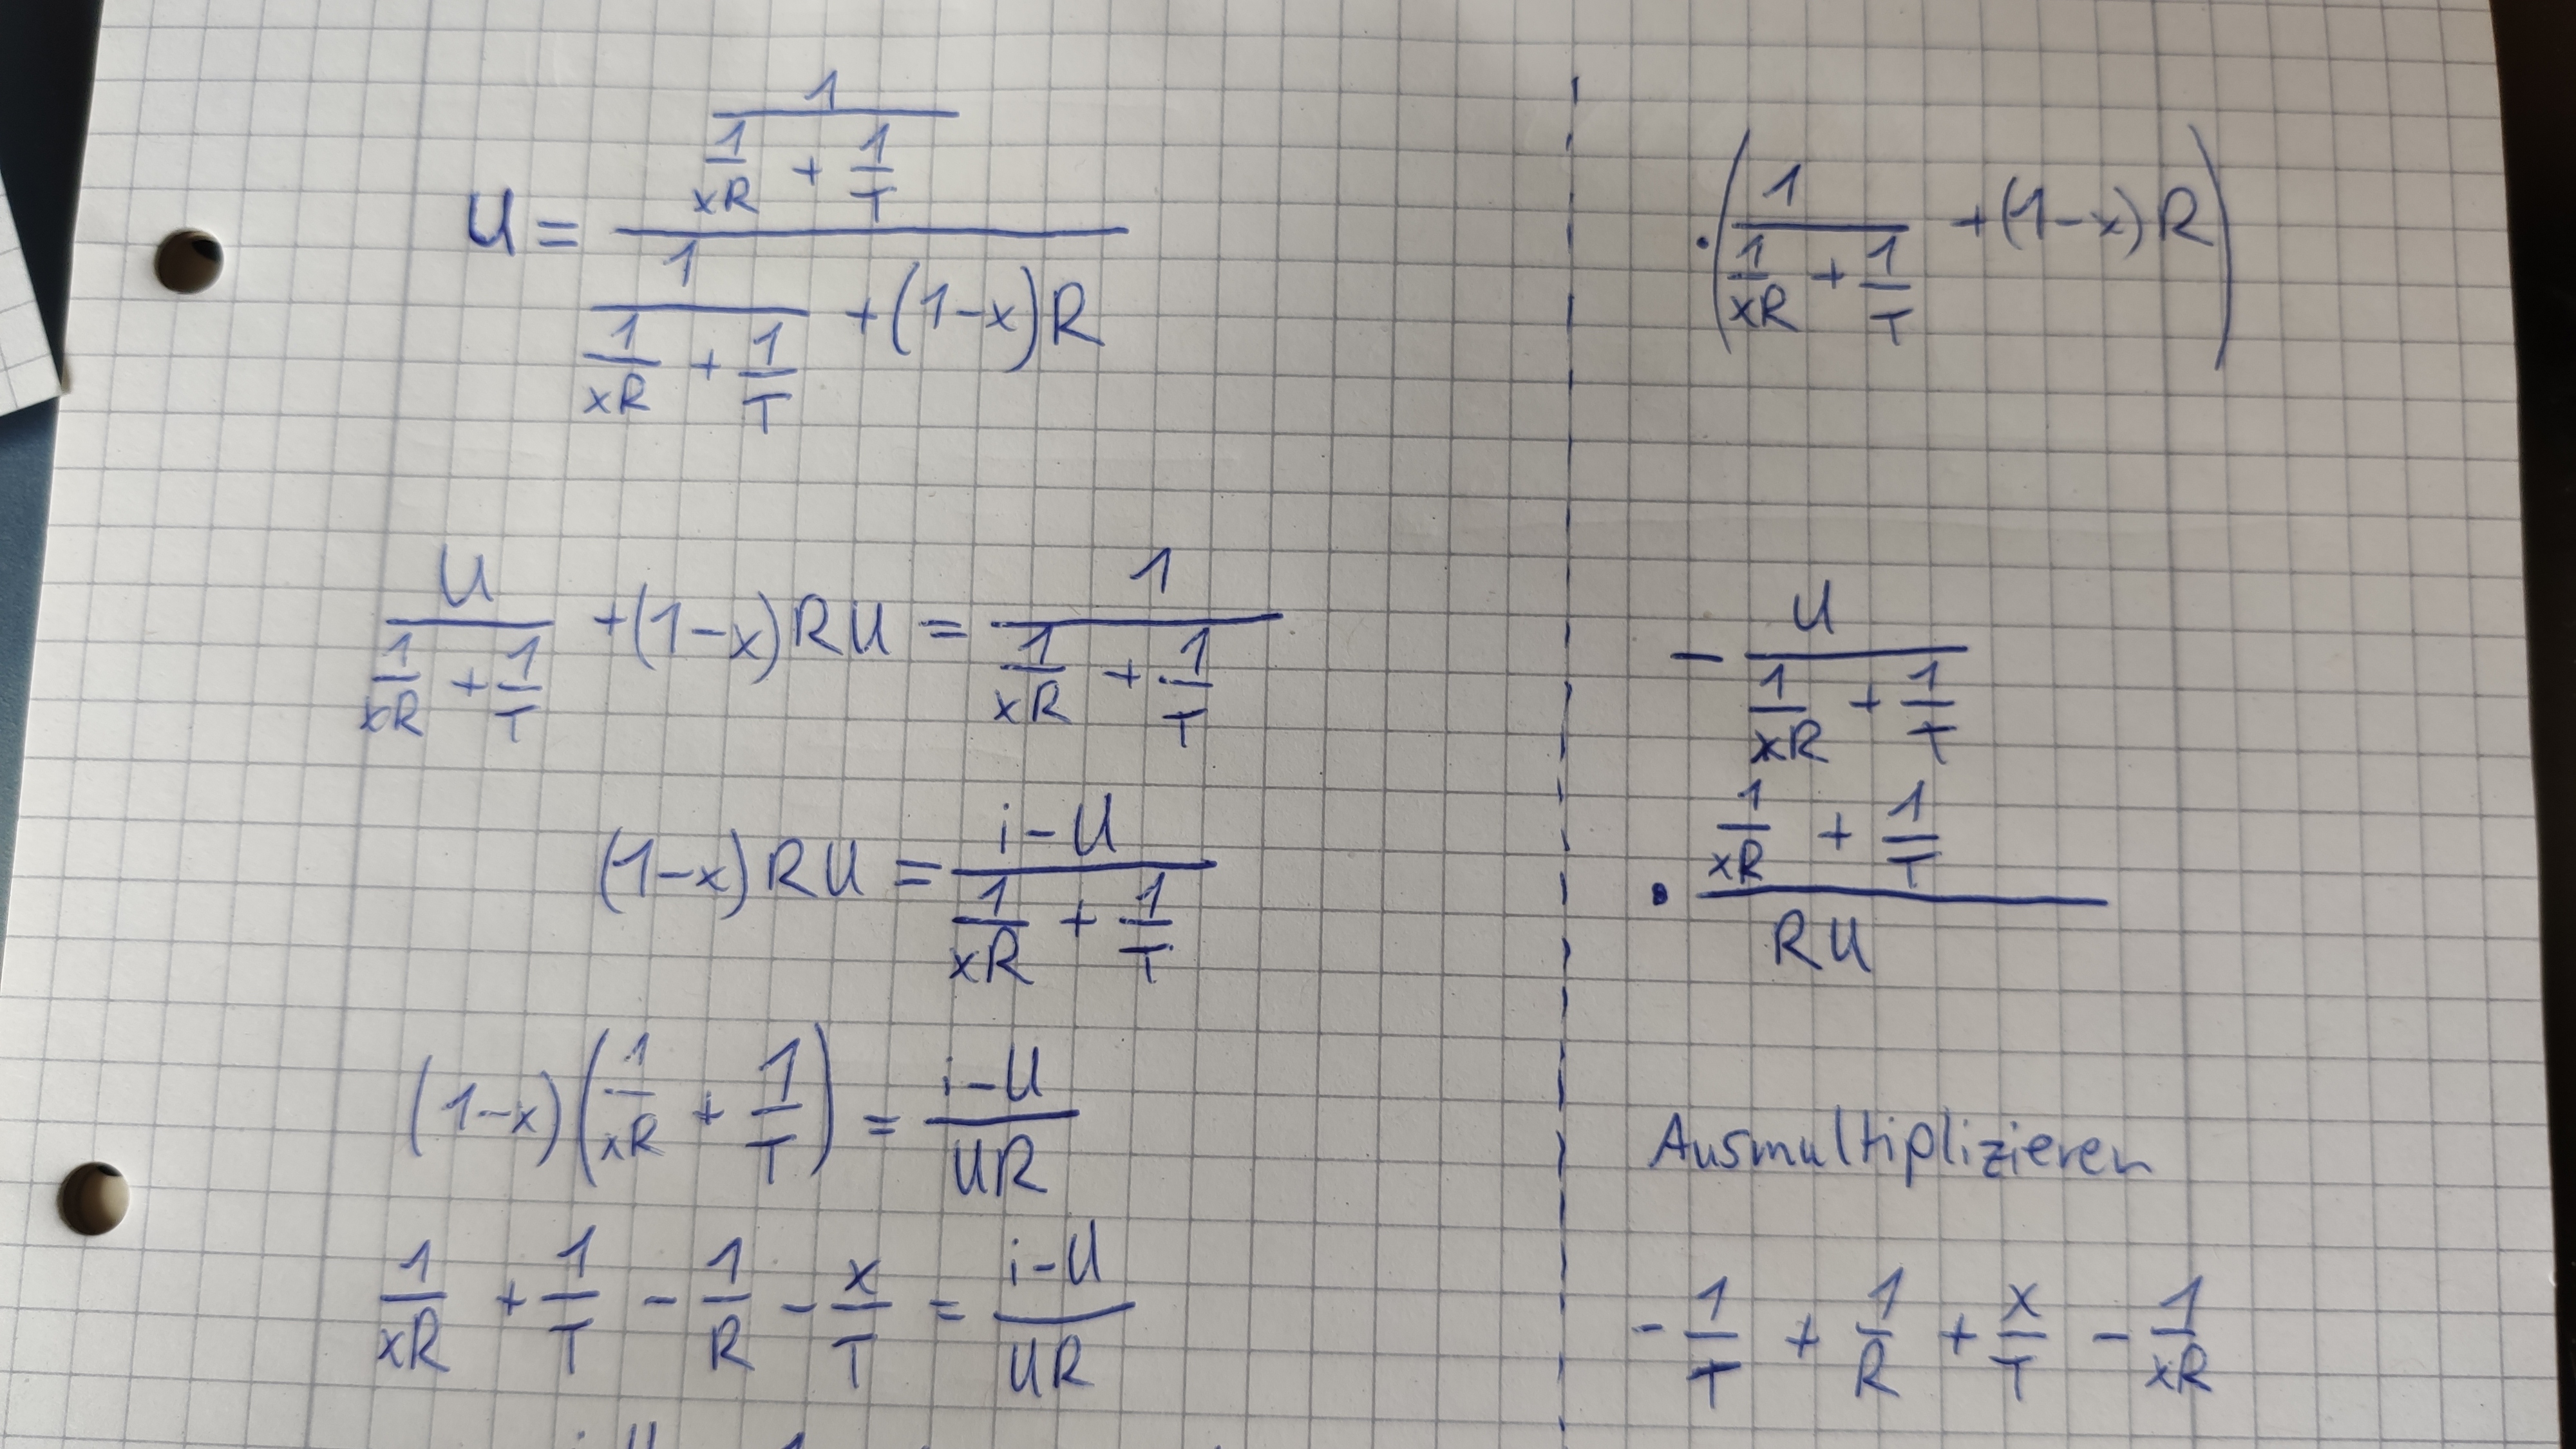 U = (1/(1/xR + 1/T)) / (1/(1/xR + 1/T) + (1-x)R)
·(1/(1/xR + 1/T) + (1-x)R)
U/(1/xR + 1/T) + (1-x)RU = 1/(1/xR + 1/T)
- U/(1/xR + 1/T)
(1-x)RU = (i-U)/(1/xR + 1/T)
· (1/xR + 1/T)/RU
(1-x)(1/xR + 1/T) = (i-U)/UR
Ausmultiplizieren
1/xR + 1/T - 1/R - x/T = (i-U)/UR
- 1/T + 1/R + x/T - 1/xR